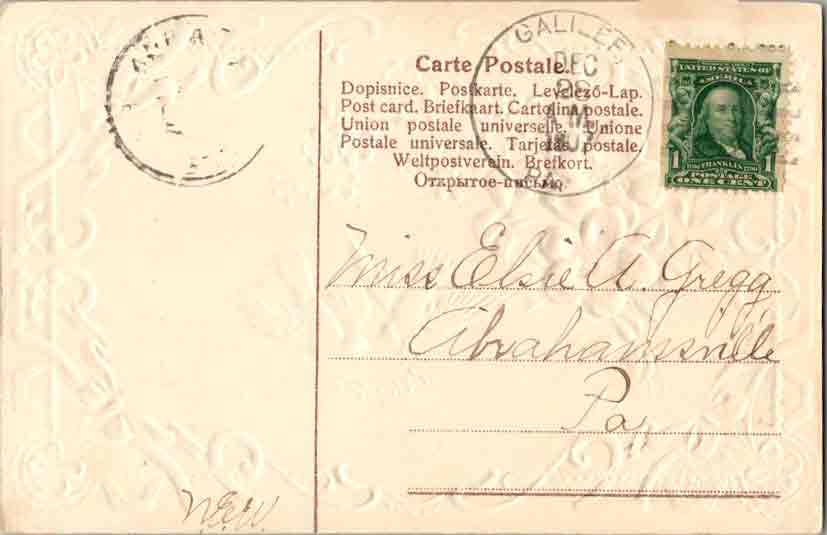 GALILEE
DEC
28
A.M.
PA.
Carte Postale.
Dopisnice. Postkarte. Levelező-Lap.
Post card. Briefkaart. Cartolina postale.
Union postale universelle. Unione
Postale universale. Tarjetas postale.
Weltpostverein. Brefkort.
Открытое-письмо.
UNITED STATES OF
AMERICA
1 FRANKLIN 1
POSTAGE
ONE CENT
Miss Elsie A. Gregg
Abrahamsville
Pa
N.E.W.